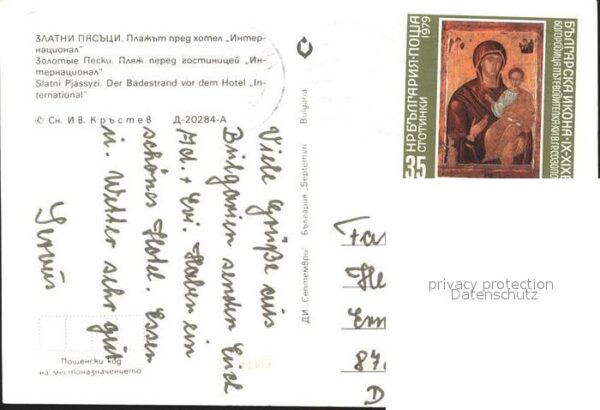 ЗЛАТНИ ПЯСЪЦИ. Плажът пред хотел „Интер-
национал"
Золотые Пески. Пляж перед гостиницей „Ин-
тернационал"
Slatni Pjassyzi. Der Badestrand vor dem Hotel „In-
ternational"
© Сн. Ив. Кръстев Д-20284-А
Viele Grüße aus
Bulgarien senden Euch
Ad. + Evi. Haben ein
schönes Hotel. Essen
u. Wetter sehr gut
Servus
Пощенски код
на местоназначението
ДИ „Септември" България „Septemvri" Bulgaria
НР БЪЛГАРИЯ·ПОЩА
1979
35 СТОТИНКИ
БЪЛГАРСКА ИКОНА·IX-XIX
Fa
He
Em
87
D
privacy protection
Datenschutz